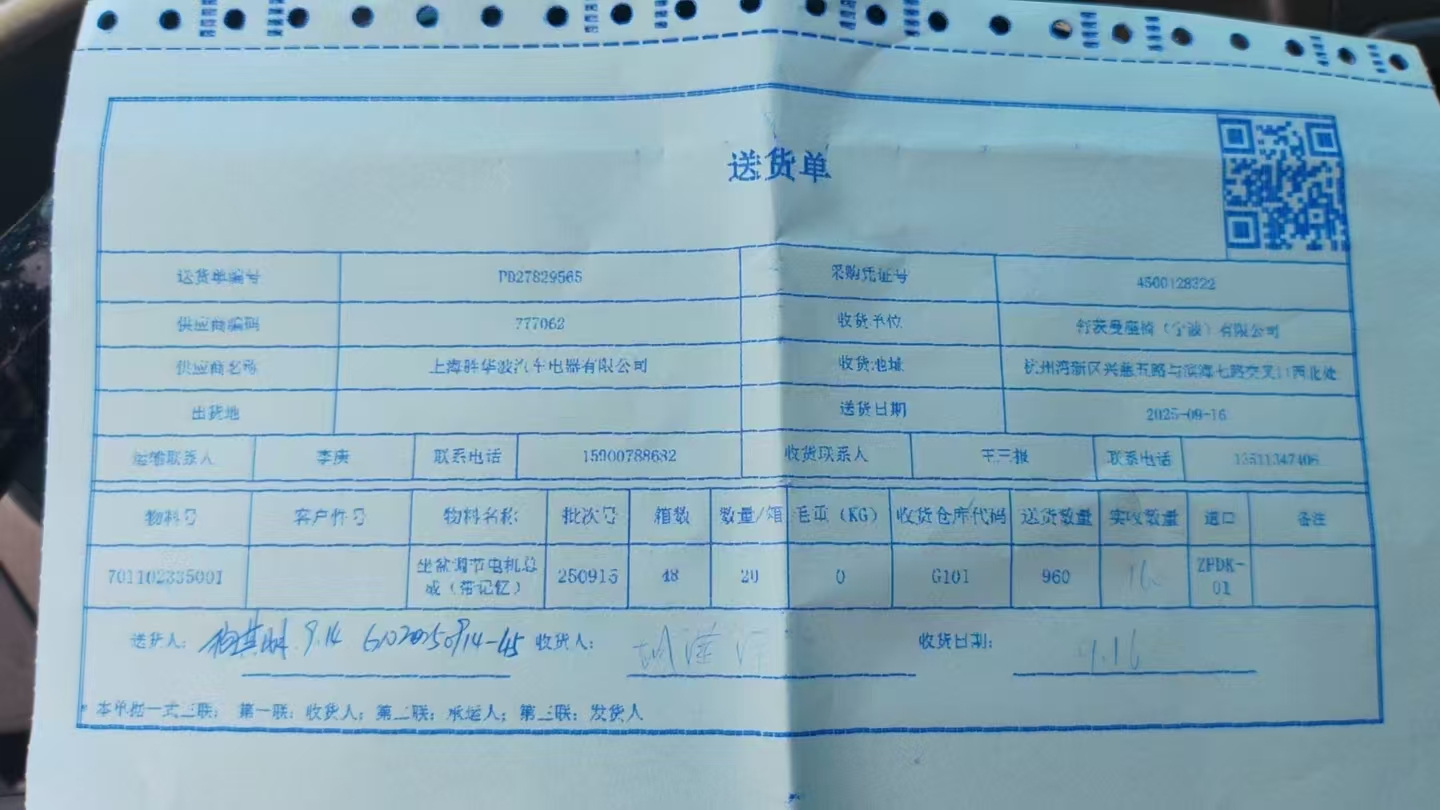 送货单
送货单编号 PD27829565 采购凭证号 4500128322
供应商编码 777062 收货单位 舒茨曼座椅（宁波）有限公司
供应商名称 上海胜华波汽车电器有限公司 收货地址 杭州湾新区兴慈五路与滨海七路交叉口西北处
出货地 送货日期 2025-09-16
运输联系人 李庚 联系电话 15900788682 收货联系人 联系电话 13511347406
物料号 客户件号 物料名称 批次号 箱数 数量/箱 毛重（KG） 收货仓库代码 送货数量 实收数量 道口 备注
701102335001 坐盆调节电机总成（带记忆） 250915 48 20 0 G101 960 ZPDK-01
送货人： 9.14 收货人： 收货日期： 9.16
* 本单据一式三联： 第一联：收货人；第二联：承运人；第三联：发货人